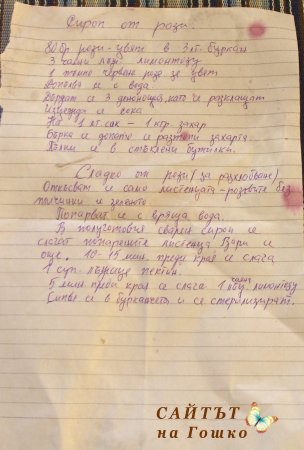 Сироп от рози.
80 бр рози - цвят в 3 лт. буркан
3 чаени лъж. лимонтозу
1 тъмно червена роза за цвят
Долива се с вода
Държат се 3 денонощия, като се разклащат
Изцежда се сока
На 1 лт. сок - 1 кгр захар
Бърка се докато се разтопи захарта
Пълни се в стъклени бутилки.
Сладко от рози (за разхлаждане)
Откъсват се само листенцата - розовите без
тичинки и зеленото
Попарват се с вряща вода.
В полуготовия сварен сироп се
слагат попарените листенца Вари се
още. 10-15 мин. преди края се слага
1 суп. лъжица пектин.
5 мин. преди края се слага 1 чаена лъж. лимонтозу
Сипва се в бурканчета и се стерилизират.
САЙТЪТ
на Гошко